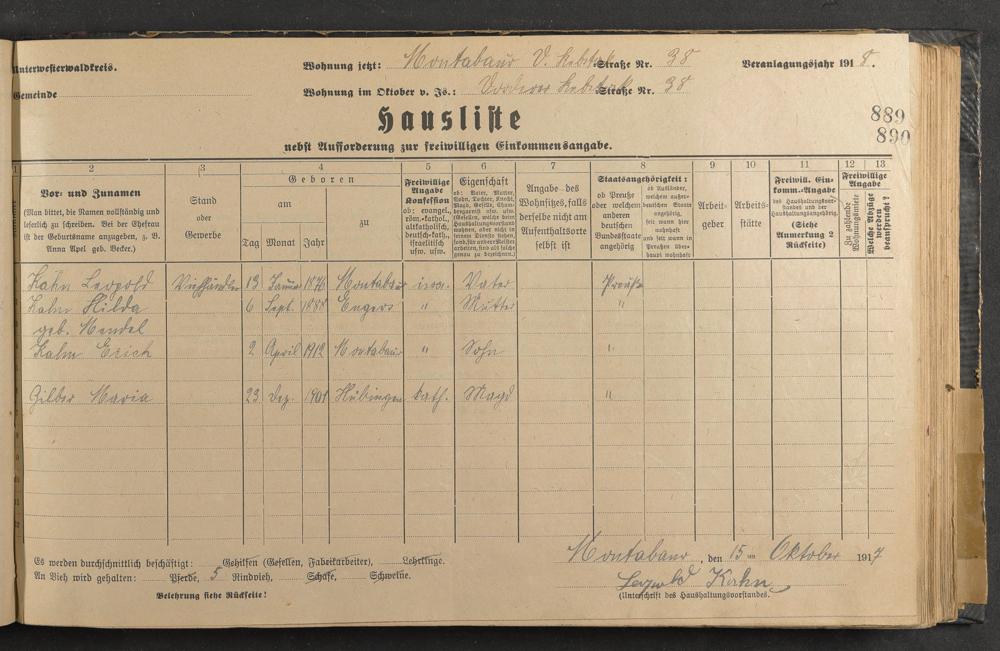 Unterwesterwaldkreis. Wohnung jetzt: Montabaur V. Rebstock Straße Nr. 38 Veranlagungsjahr 1918.
Gemeinde Wohnung im Oktober v. Js.: Vorderer Rebstock Straße Nr. 38
889
890
Hausliste
nebst Aufforderung zur freiwilligen Einkommensangabe.
1 2 3 4 5 6 7 8 9 10 11 12 13
Vor- und Zunamen
(Man bittet, die Namen vollständig und
leserlich zu schreiben. Bei der Ehefrau
ist der Geburtsname anzugeben, z. B.
Anna Apel geb. Becker.)
Stand
oder
Gewerbe
Geboren
am
zu
Tag Monat Jahr
Freiwillige
Angabe
Konfession
ob: evangel.,
röm.-kathol.,
altkatholisch,
deutsch-kath.,
israelitisch
usw. usw.
Eigenschaft
Angabe des
Wohnsitzes, falls
derselbe nicht am
Aufenthaltsorte
selbst ist
Staatsangehörigkeit:
ob Preuße
oder welchem
anderen
deutschen
Bundesstaate
angehörig
ob Ausländer,
welchem außer-
deutschen Staate
angehörig,
seit wann hier
wohnhaft
und seit wann in
Preußen über-
haupt wohnhaft
Arbeit-
geber
Arbeits-
stätte
Freiwill. Ein-
komm.-Angabe
des Haushaltungsvor-
standes und der
Haushaltungsangehörig.
(Siehe
Anmerkung 2
Rückseite)
Freiwillige
Angabe
Zu zahlende
Wohnungsmiete
Welche Abzüge
werden
beansprucht?
Kahn Leopold Viehhändler 13 Januar 1876 Montabaur isra. Vater Preuße
Kahn Hilda 6 Sept. 1888 Engers " Mutter "
geb. Mendel
Kahn Erich 2 April 1912 Montabaur " Sohn "
Gilber Maria 23 Dez. 1901 Hübingen kath. Magd "
Es werden durchschnittlich beschäftigt: Gehilfen (Gesellen, Fabrikarbeiter), Lehrlinge.
An Vieh wird gehalten: Pferde, 5 Rindvieh, Schafe, Schweine.
Belehrung siehe Rückseite!
Montabaur, den 15ten Oktober 1917
Leopold Kahn
(Unterschrift des Haushaltungsvorstandes.